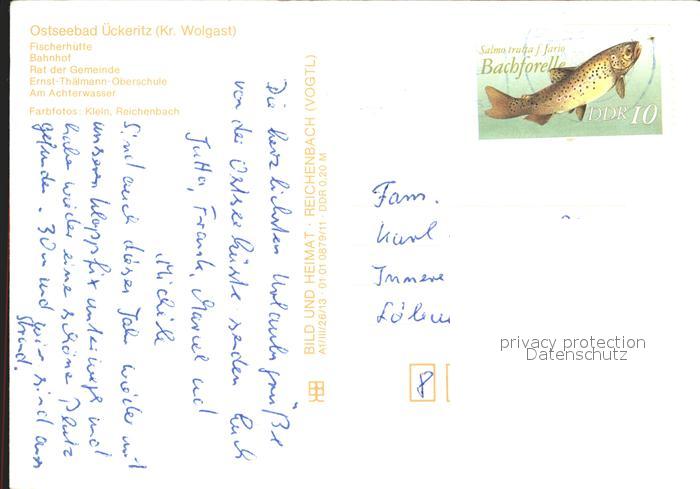 Ostseebad Ückeritz (Kr. Wolgast)
Fischerhütte
Bahnhof
Rat der Gemeinde
Ernst-Thälmann-Oberschule
Am Achterwasser
Farbfotos: Klein, Reichenbach
BILD UND HEIMAT · REICHENBACH (VOGTL)
A1/III/26/13 · 01 01 0879/11 · DDR 0,20 M
Salmo trutta f. fario
Bachforelle
DDR 10
Die herzlichsten Urlaubsgrüße
von der Ostseeküste senden Euch
Jutta, Frank, Marcel und
Michele
Sind auch dieses Jahr wieder mit
unserem Klappfix unterwegs und
haben wieder eine schöne Platz
gefunden. 30m und wir sind am
Strand.
Fam.
Karl
Immere
8
privacy protection
Datenschutz